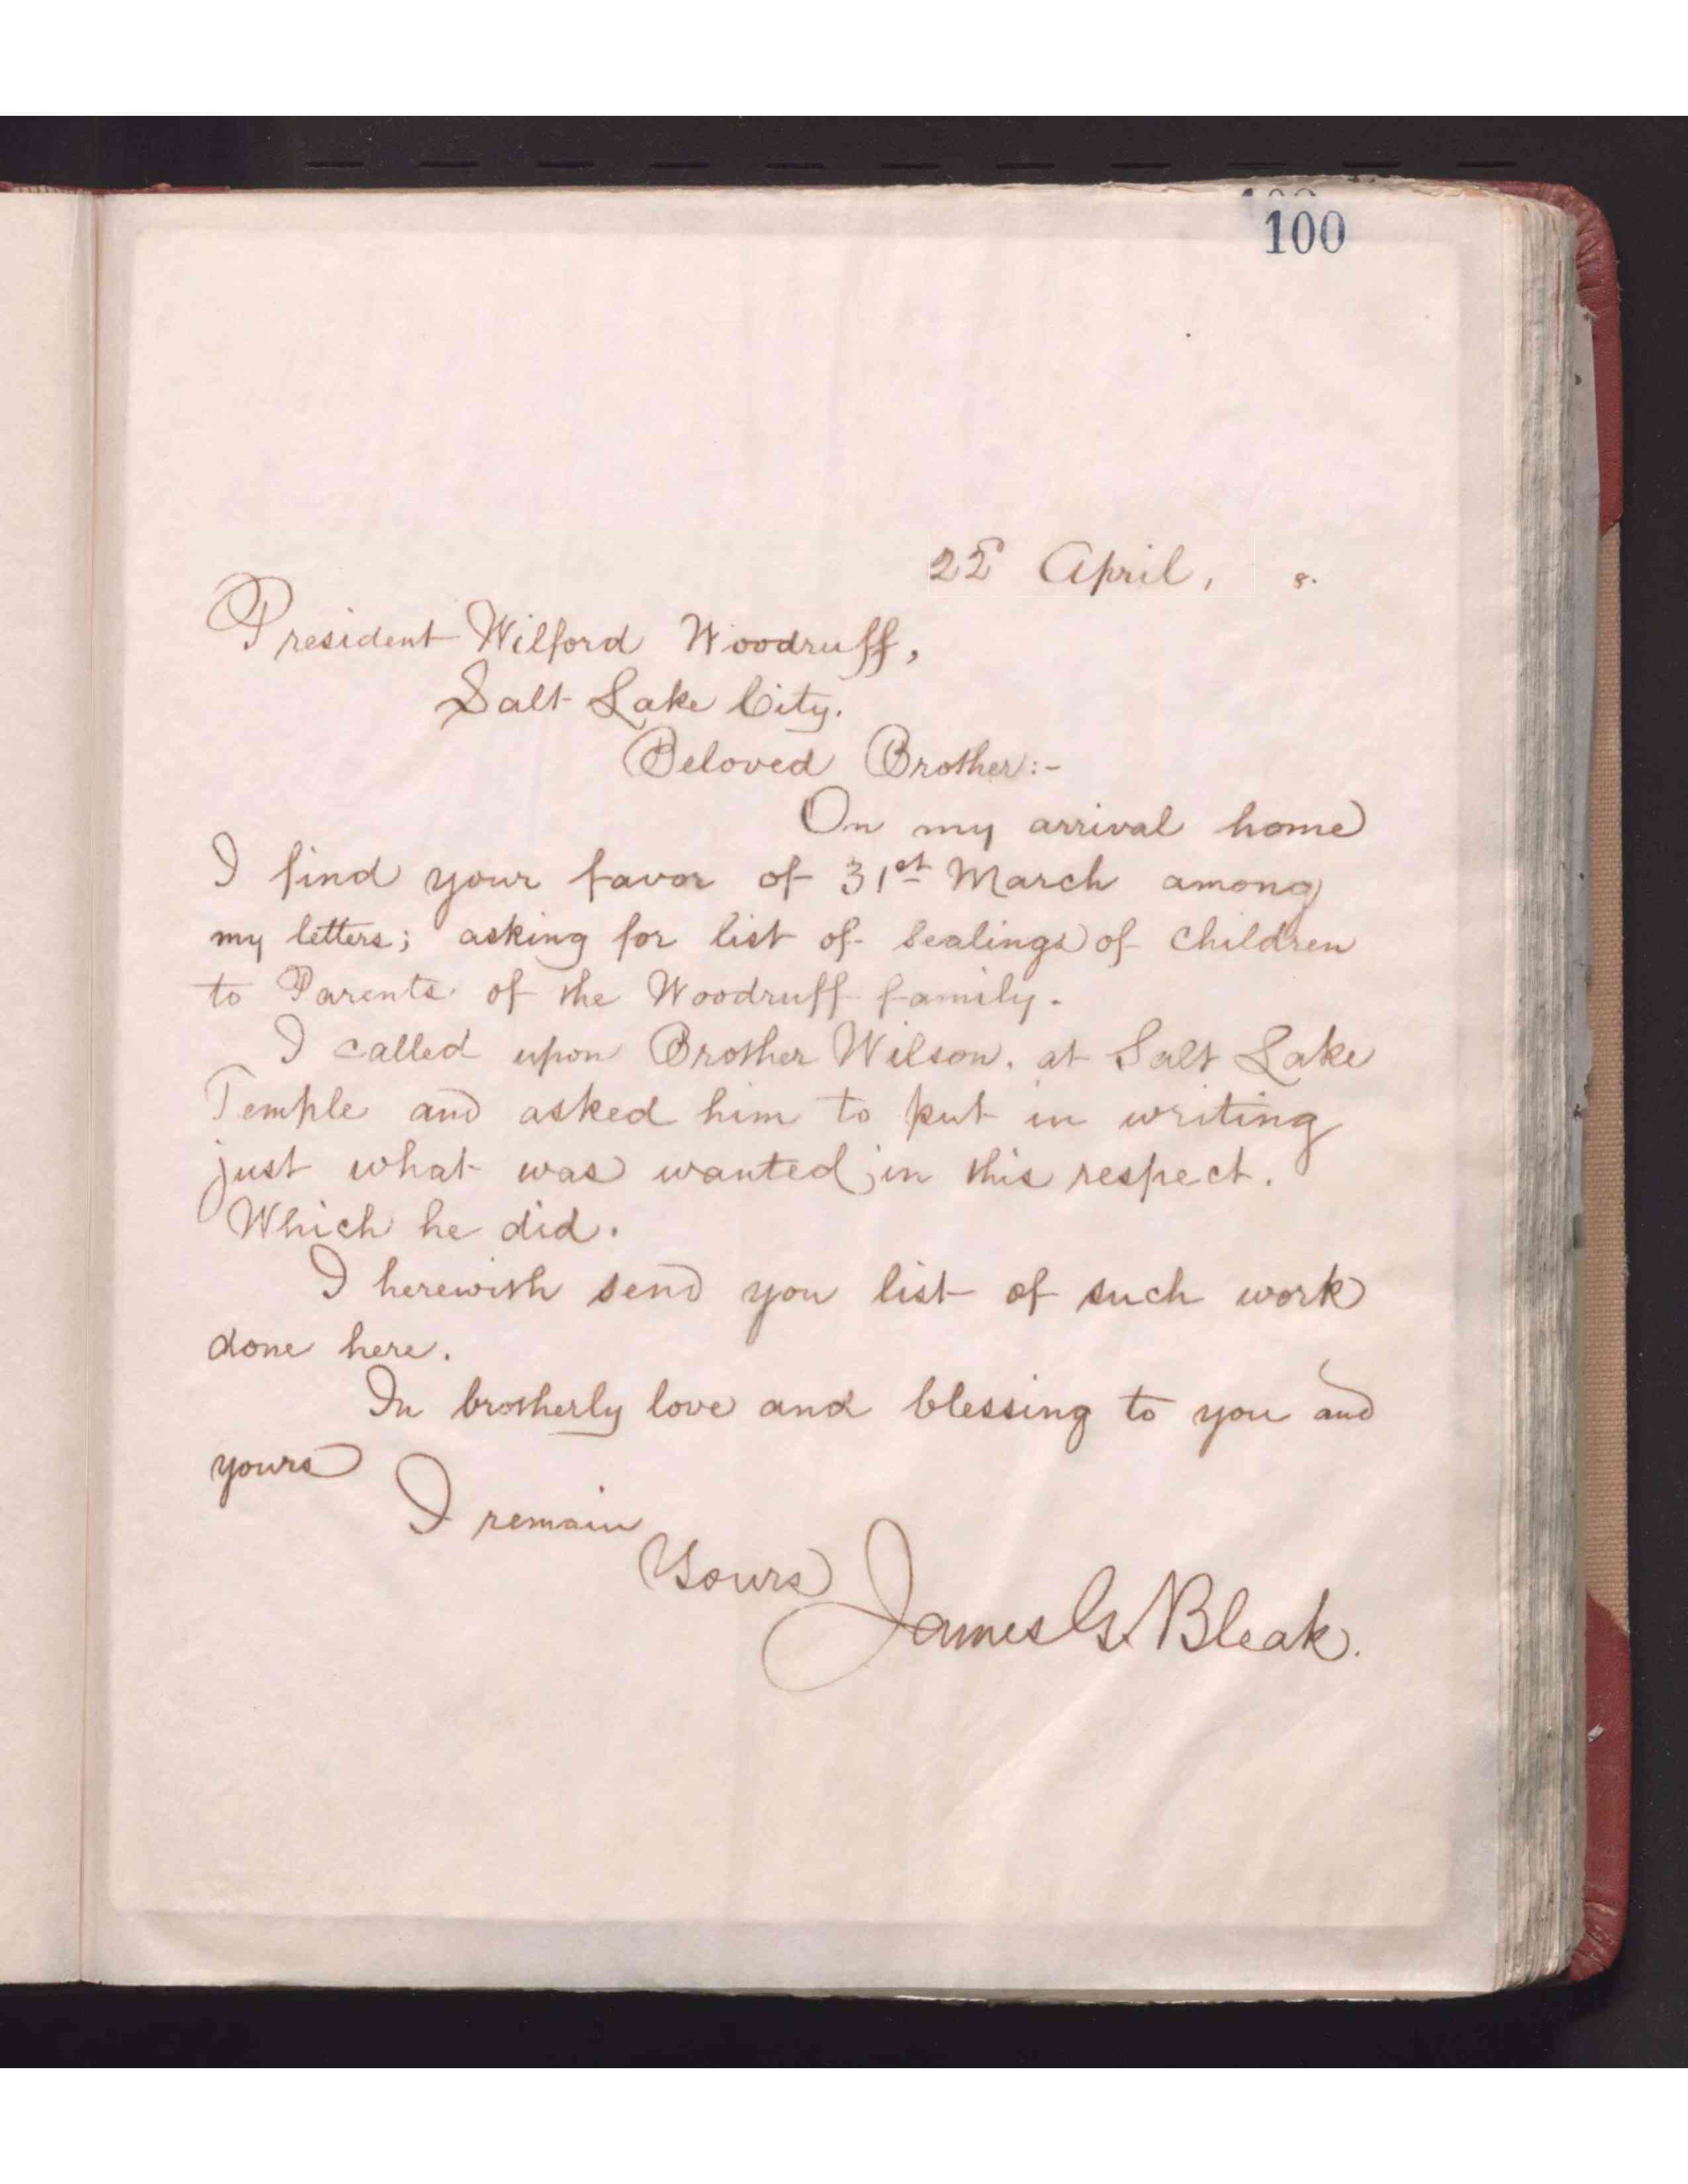 100
22d April, 8.
President Wilford Woodruff,
Salt Lake City.
Beloved Brother:-
On my arrival home
I find your favor of 31st March among
my letters; asking for list of Sealings of Children
to Parents of the Woodruff family.
I called upon Brother Wilson, at Salt Lake
Temple and asked him to put in writing
just what was wanted in this respect.
Which he did.
I herewith send you list of such work
done here.
In brotherly love and blessing to you and
yours
I remain
Yours
James G. Bleak.